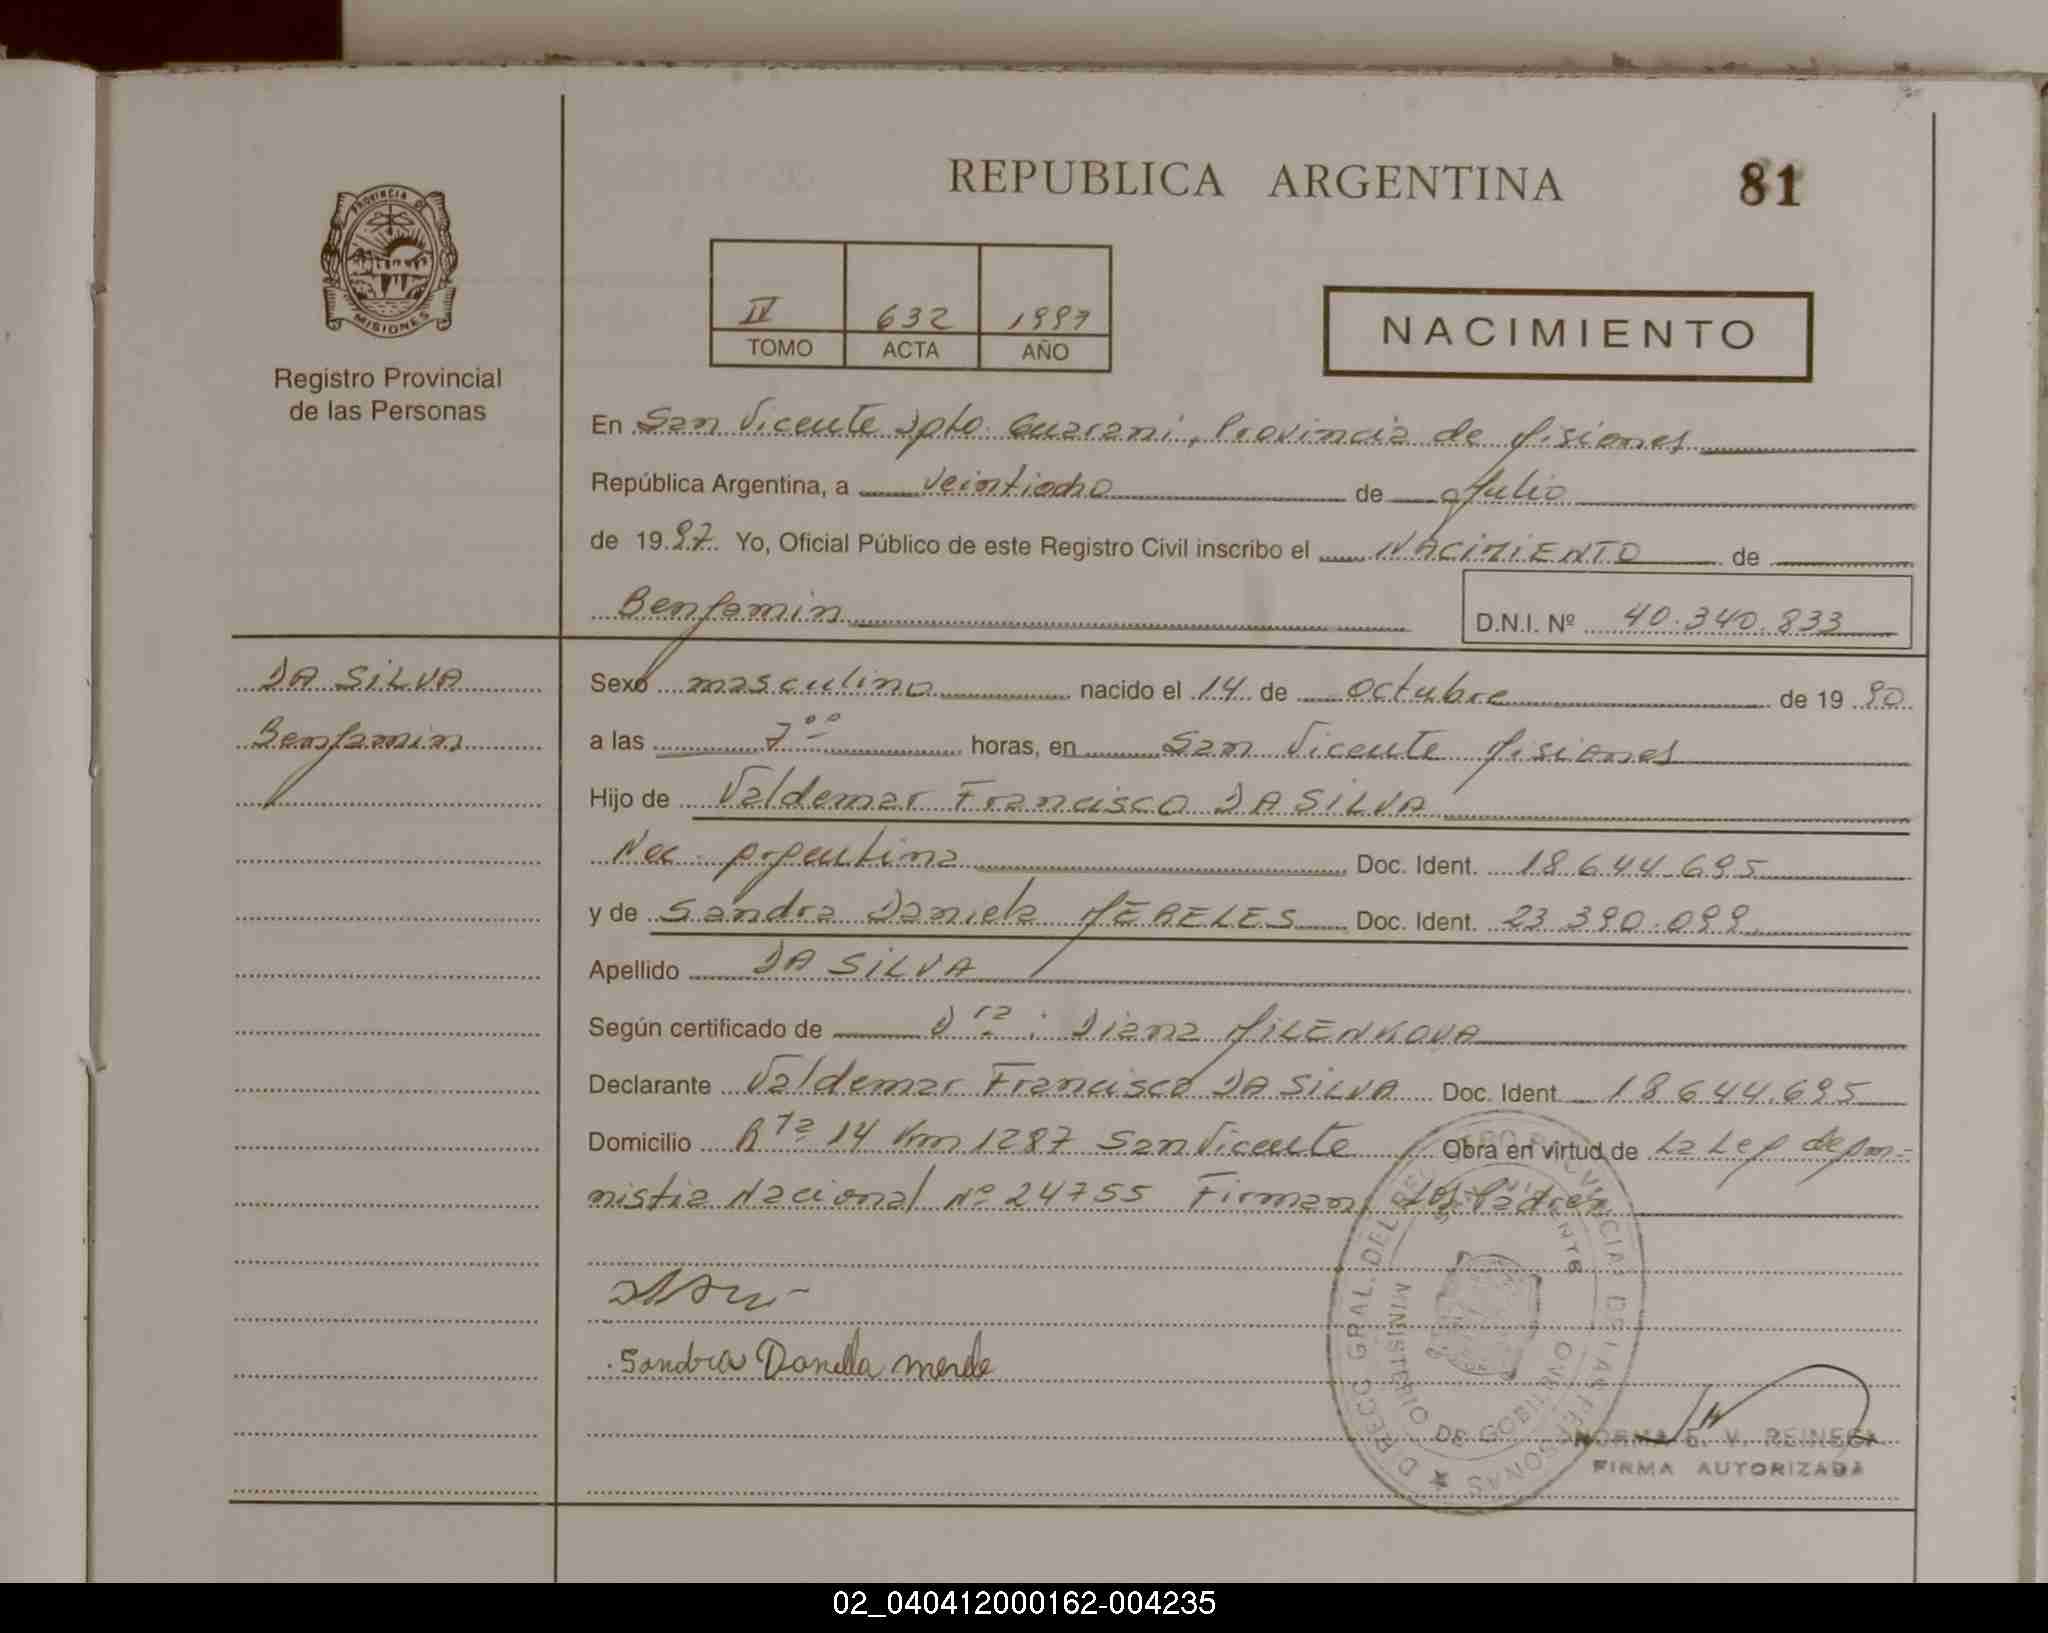 REPUBLICA ARGENTINA
81
PROVINCIA DE
MISIONES
Registro Provincial
de las Personas
IV 632 1997
TOMO ACTA AÑO
NACIMIENTO
En San Vicente Dpto. Guarani, Provincia de Misiones
República Argentina, a veintiocho de Julio
de 1997 Yo, Oficial Público de este Registro Civil inscribo el NACIMIENTO de
Benjamin
D.N.I. Nº 40.340.833
DA SILVA
Benjamin
Sexo masculino nacido el 14 de octubre de 1990
a las 7 00 horas, en San Vicente Misiones
Hijo de Valdemar Francisco DA SILVA
Nac. Argentina Doc. Ident. 18.644.695
y de Sandra Daniela MERELES Doc. Ident. 23.390.099
Apellido DA SILVA
Según certificado de Dra: Diana MILENKOVA
Declarante Valdemar Francisco DA SILVA Doc. Ident. 18.644.695
Domicilio Rta 14 Km 1287 San Vicente Obra en virtud de La Ley de Am-
nistia Nacional Nº 24755 Firman Los Padres
Sandra Daniela
DIRECC. GRAL. DEL REG. PROVINCIAL DE LAS PERSONAS
MINISTERIO DE GOBIERNO
NORMA E. V. REINEGA
FIRMA AUTORIZADA
02_040412000162-004235